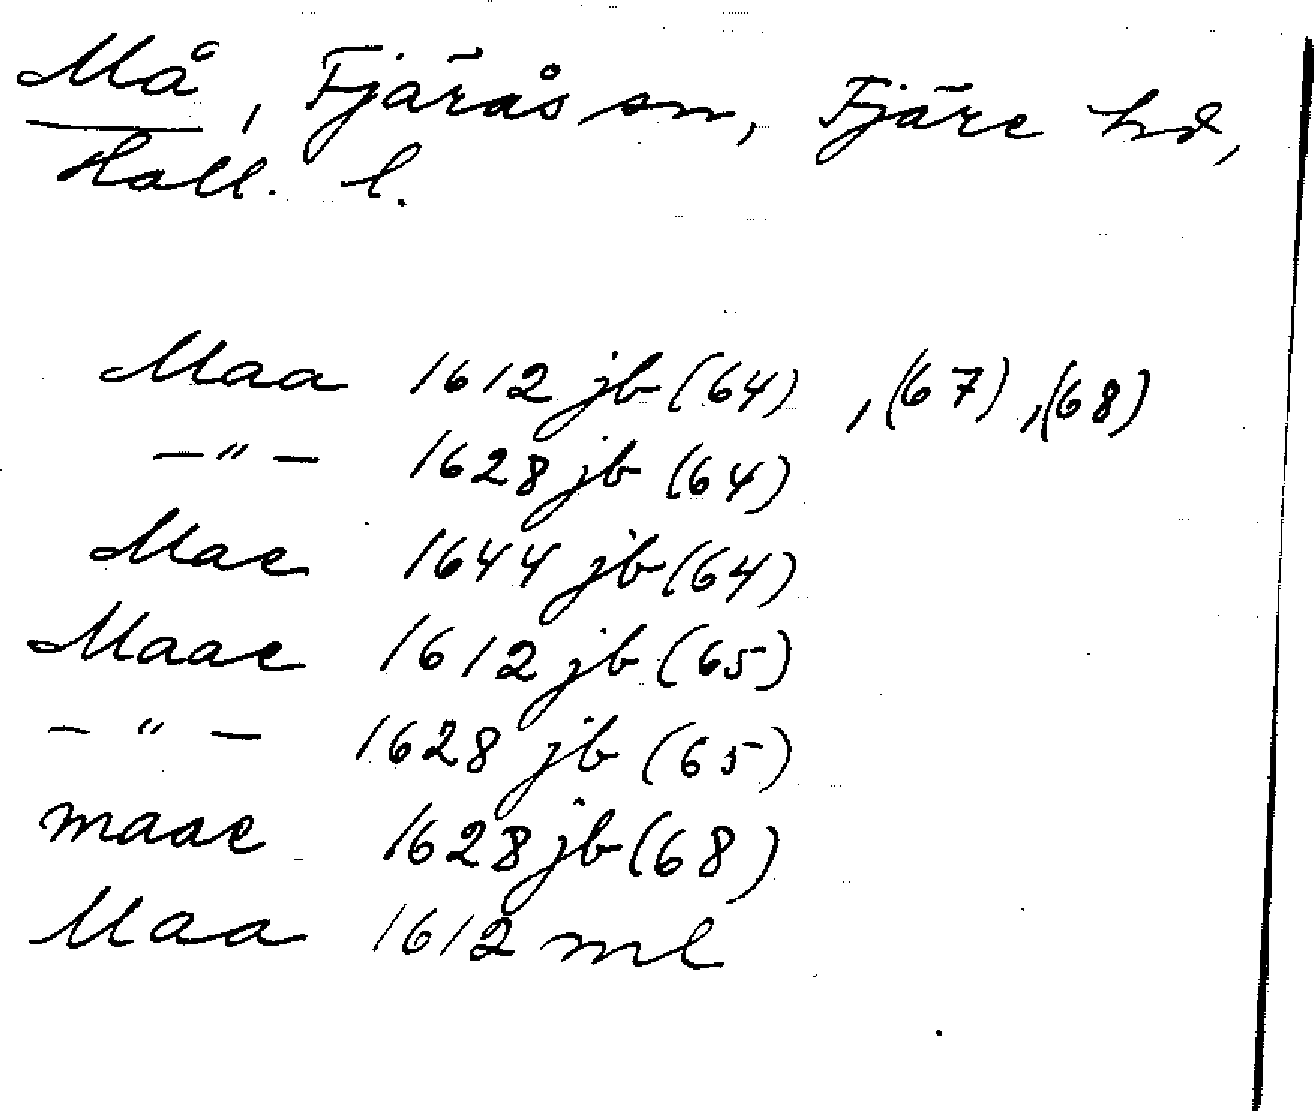 Må, Fjärås sn, Fjäre hd,
Hall. l.
Maa 1612 jb (64), (67), (68)
— " — 1628 jb (64)
Mae 1644 jb (64)
Maae 1612 jb (65)
— " — 1628 jb (65)
maae 1628 jb (68)
Maa 1612 ml